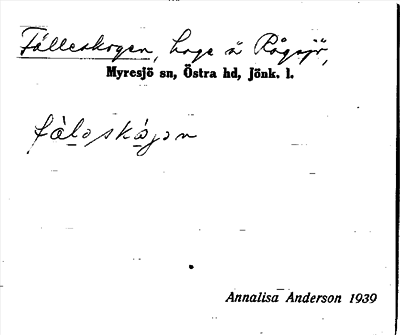 Fålleskogen, hage å Rågsjö,
Myresjö sn, Östra hd, Jönk. l.
fàləskágən
Annalisa Anderson 1939